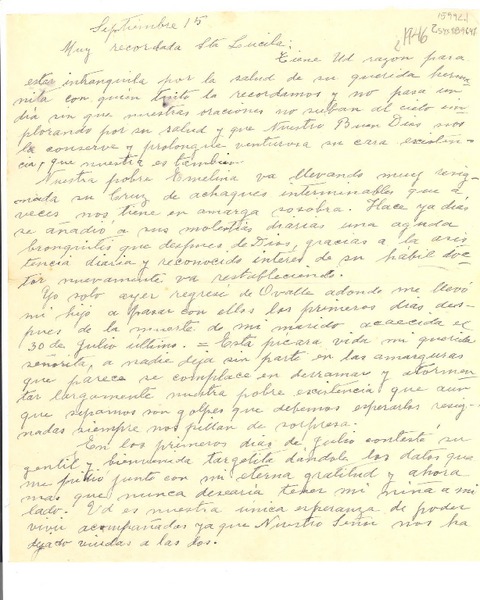 Septiembre 15
¿1946
Muy recordada Sta Lucila:
Tiene Ud razón para
estar intranquila por la salud de su querida herma-
nita con quién tánto la recordamos y no pasa un
día sin que nuestras oraciones no suban al cielo im-
plorando por su salud y que Nuestro Buen Dios nos
la conserve y prolongue venturosa su cara existen-
cia, que nuestra es también.
Nuestra pobre Emelina va llevando muy resig-
nada su Cruz de achaques interminables que a
veces nos tiene en amarga sosobra. Hace ya días
se añadió a sus molestias diarias una aguda
bronquitis que despues de Dios, gracias a la asis
tencia diaria y reconocido interés de su hábil doc-
tor nuevamente va restableciendo.
Yo solo ayer regresé de Ovalle adonde me llevó
mi hijo a pasar con ellos los primeros días des-
pues de la muerte de mi marido acaecida el
30 de Julio último. = Esta pícara vida mi querida
señorita, a nadie deja sin parte en las amarguras
que parece se complace en derramar y atormen
tar largamente nuestra pobre existencia que aun
que sepamos son golpes que debemos esperarlos resig-
nadas siempre nos pillan de sorpresa.
En los primeros días de Julio contesté su
gentil y bienvenida tarjetita dándole los datos que
me pidió junto con mi eterna gratitud y ahora
mas que nunca desearía tener mi niña a mi
lado. Ud es nuestra unica esperanza de poder
vivir acompañadas ya que Nuestro Señor nos ha
dejado viudas a las dos.